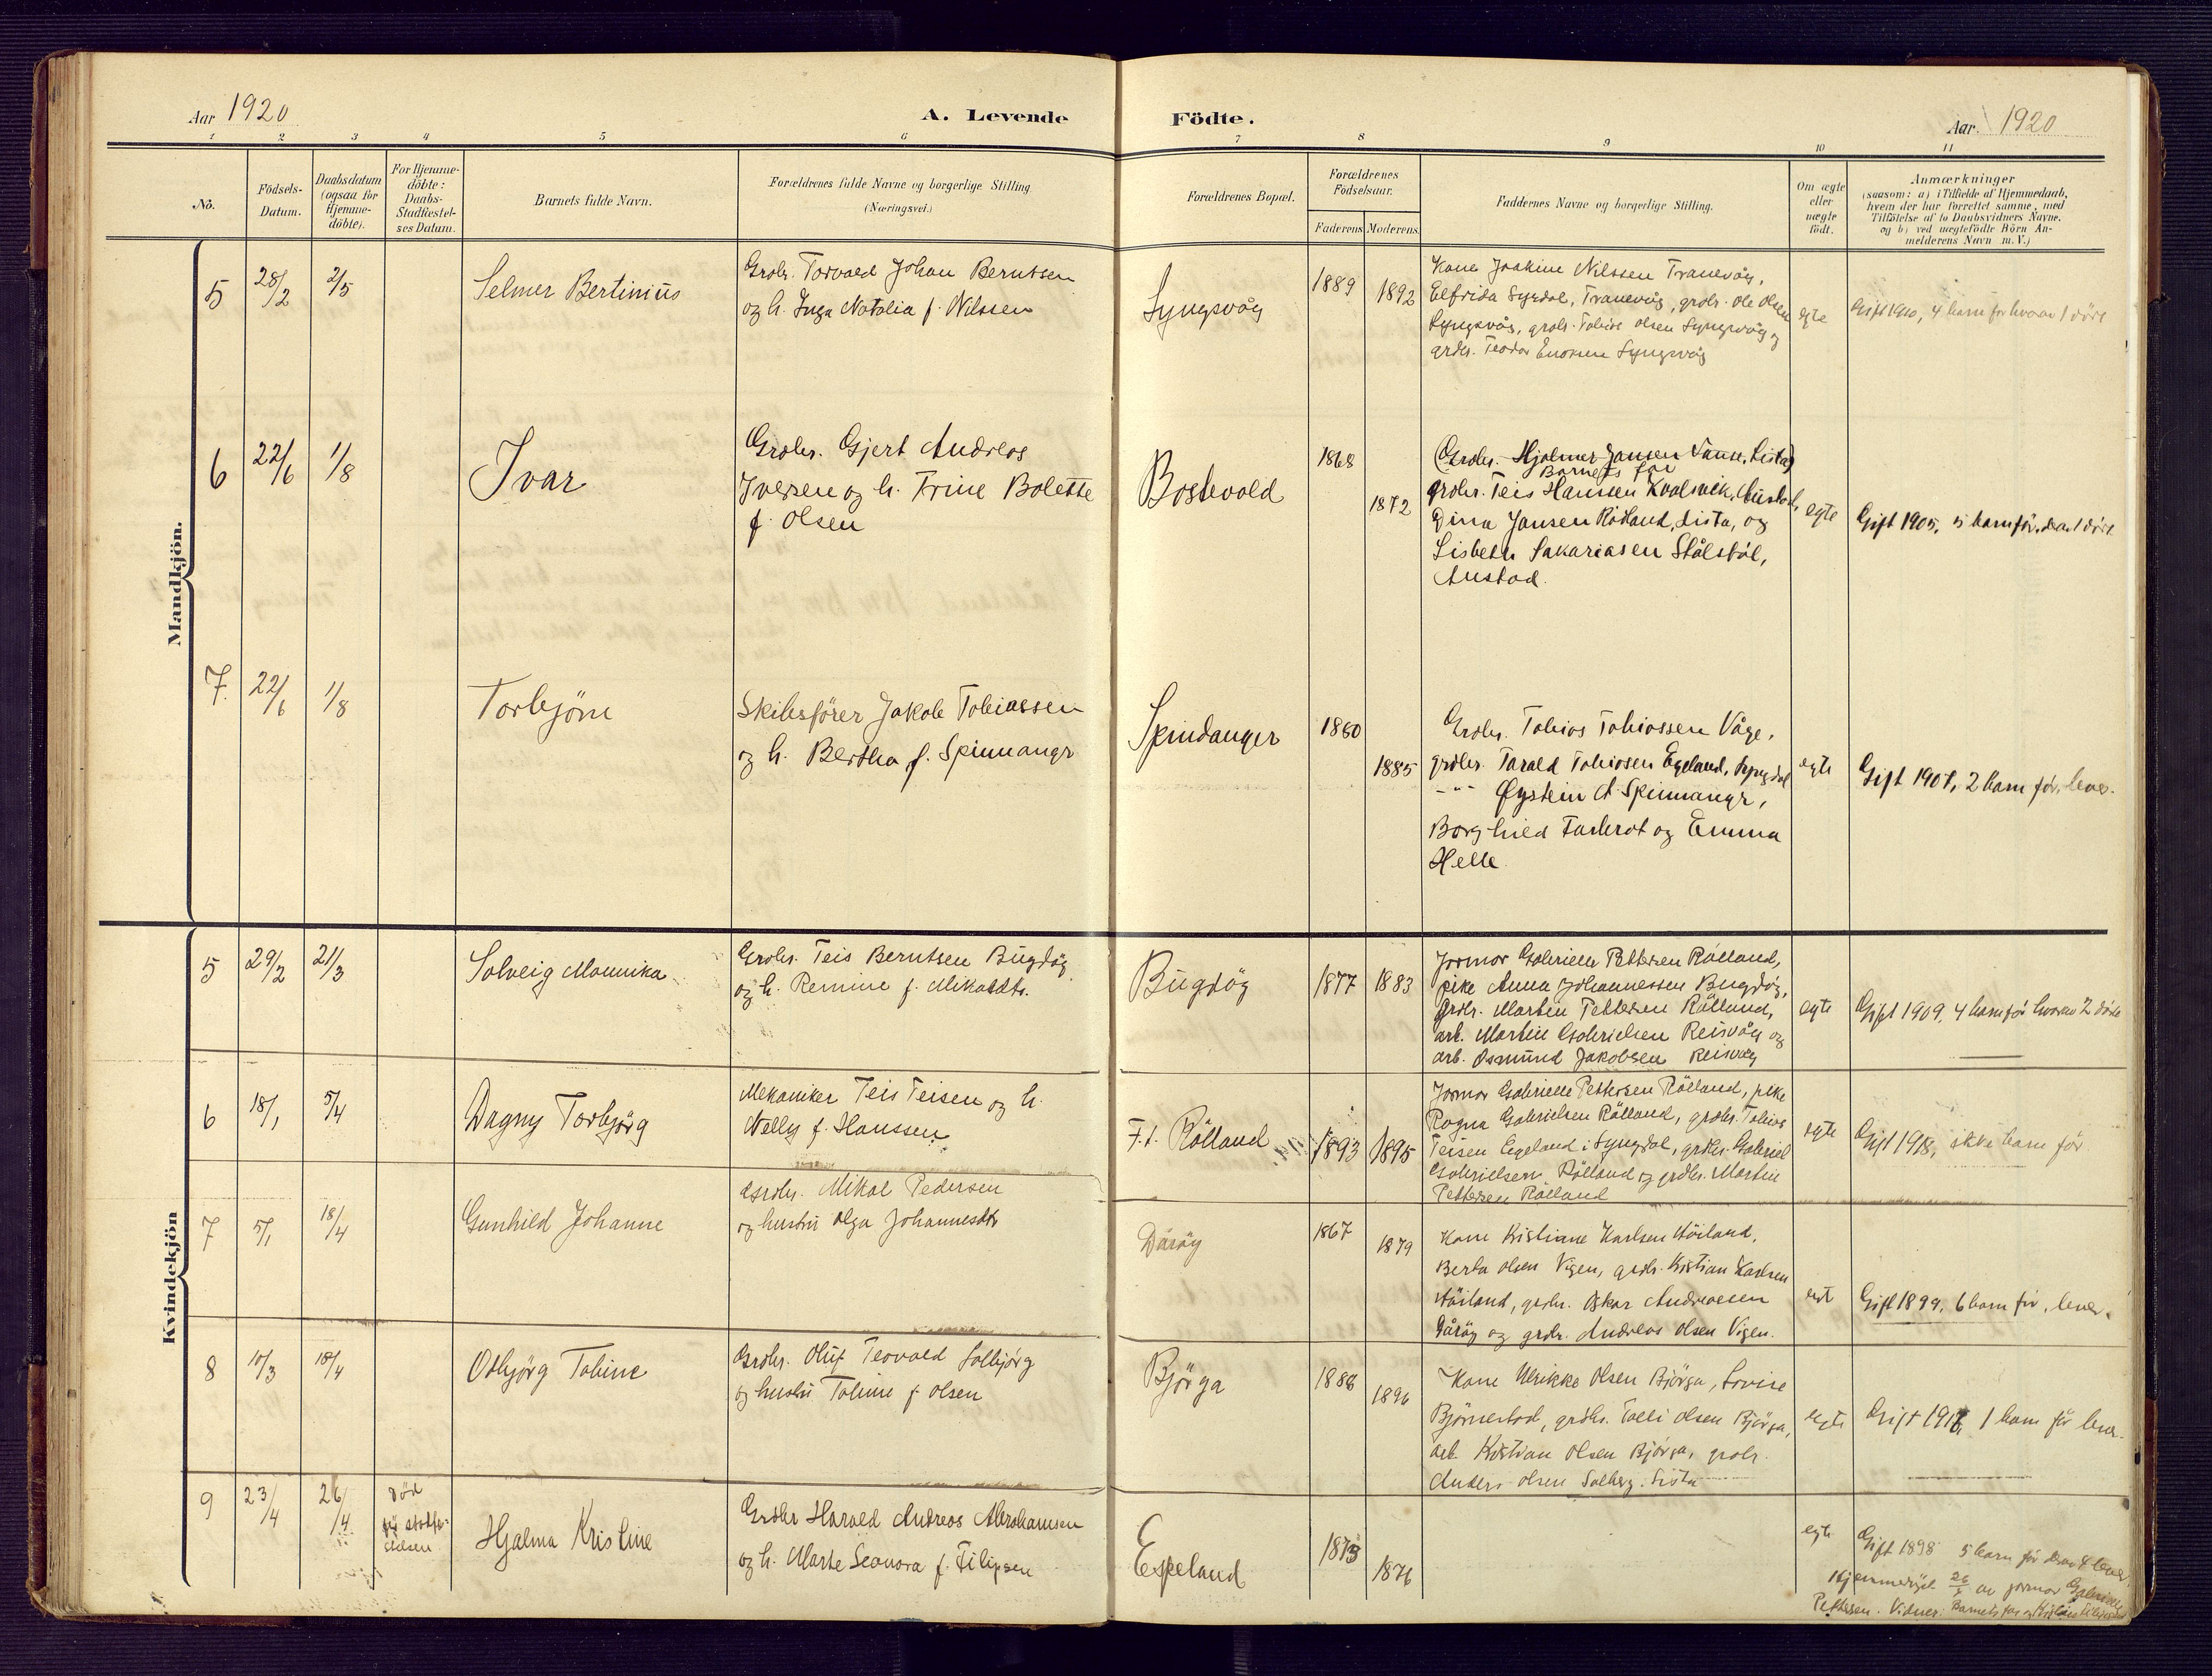 Aar 1920
A. Levende Födte.
Aar. 1920
1 2 3 4 5 6 7 8 9 10 11
No.
Födsels-
Datum.
Daabsdatum
(ogsaa for
Hjemme-
döbte).
For Hjemme-
döbte:
Daabs-
Stadfæstel-
ses Datum.
Barnets fulde Navn.
Forældrenes fulde Navne og borgerlige Stilling
(Næringsvei.)
Forældrenes Bopæl.
Forældrenes
Födselsaar.
Faderens Moderens.
Faddernes Navne og borgerlige Stilling.
Om ægte
eller
uægte
födt.
Anmærkninger
(saasom: a) i Tilfælde af Hjemmedaab,
hvem der har forrettet samme, med
Tilföielse af to Daabsvidners Navne,
og b) ved uægtefödte Börn An-
melderens Navn m. V.)
Mandkjön.
5 28/2 2/5
Selmer Bertinius
Grdbr. Torvald Johan Berntsen
og h. Inga Natalia f. Nilssen
Lyngsvåg
1889 1892
Kone Joakine Nilssen Tranevåg,
Elfrida Lyngdal, Tranevåg, grdbr. Ole Olsen
Lyngsvåg, grdbr. Tobias Olsen Lyngsvåg og
grdbr. Teodor Enoksen Lyngsvåg
egte
Gift 1910, 4 barn før hvorav 1 dødt
6 22/6 1/8
Ivar
Grdbr. Gjert Andreas
Iversen og h. Trine Bolette
f. Olsen
Bostevold
1868 1872
(Grdbr. Hjalmer Jansen Vanse, Lista)
Barnets far
grdbr. Teis Hanssen Kvalsvik, Austad,
Dina Jansen Rødland, Lista, og
Lisbeth Sakariasen Stålsböl,
Austad.
egte
Gift 1905, 5 barn før, derav 1 dødt
7. 22/6 1/8
Torbjörn
Skibsfører Jakob Tobiassen
og h. Bertha f. Spinnangr
Spindanger
1880 1885
Grdbr. Tobias Tobiassen Våge,
grdbr. Tarald Tobiasen Egeland, Lyngdal
-"- Øystein A. Spinnangr,
Borghild Farbrot og Emma
Helle.
egte
Gift 1907, 2 barn før, lever.
Kvindekjön
5 29/2 21/3
Solveig Monnika
Grdbr. Teis Berntsen Bugdøy
og h. Remine f. Mikalsdtr.
Bugdøy
1877 1883
Jormor Gabrielle Pettersen Rölland,
pike Anna Johannessen Bugdøy,
grdbr. Martin Pettersen Rölland,
arb. Martin Gabrielsen Reisvåg og
arb. Osmund Jakobsen Reisvåg
egte
Gift 1909, 4 barn før hvorav 2 døde
6 18/1 5/4
Dagny Torbjörg
Mekaniker Teis Teisen og h.
Nelly f. Hanssen
F.t. Rölland
1893 1895
Jormor Gabrielle Pettersen Rölland, pike
Ragna Gabrielsen Rölland, grdbr. Tobias
Teisen Egeland i Lyngdal, grdbr. Gabriel
Gabrielsen Rölland og grdbr. Martin
Pettersen Rölland
egte
Gift 1918, ikke barn før
7 5/1 18/4
Gunhild Johanne
Grdbr. Mikal Pedersen
og hustru Olga Johannesdtr
Dårøy
1867 1879
Kone Kristiane Karlsen Höiland,
Berta Olsen Vigen, grdbr. Kristian Karlsen
Höiland, grdbr. Oskar Andreassen
Dårøy og grdbr. Andreas Olsen Vigen.
egte
Gift 1899, 6 barn før, lever.
8 10/3 18/4
Osbjörg Tobine
Grdbr. Oluf Teovald Solbjørg
og hustru Tobine f. Olsen
Björga
1888 1896
Kone Ulrikke Olsen Björga, Lovise
Björnestad, grdbr. Tolli Olsen Björga,
arb. Kristian Olsen Björga, grdbr.
Anders Olsen Solberg, Lista
egte
Gift 1918, 1 barn før lever.
9 23/4 26/4
Död
før stadfæ-
stelsen
Hjalma Kristine
Grdbr Harald Andreas Abrahamsen
og h. Marte Leonora f. Filipsen
Espeland
1873 1876
egte
Gift 1898 5 barn før derav 4 lever.
Hjemmedøpt 26/4 av jormor Gabrielle
Pettersen. Vidner: Barnets far og